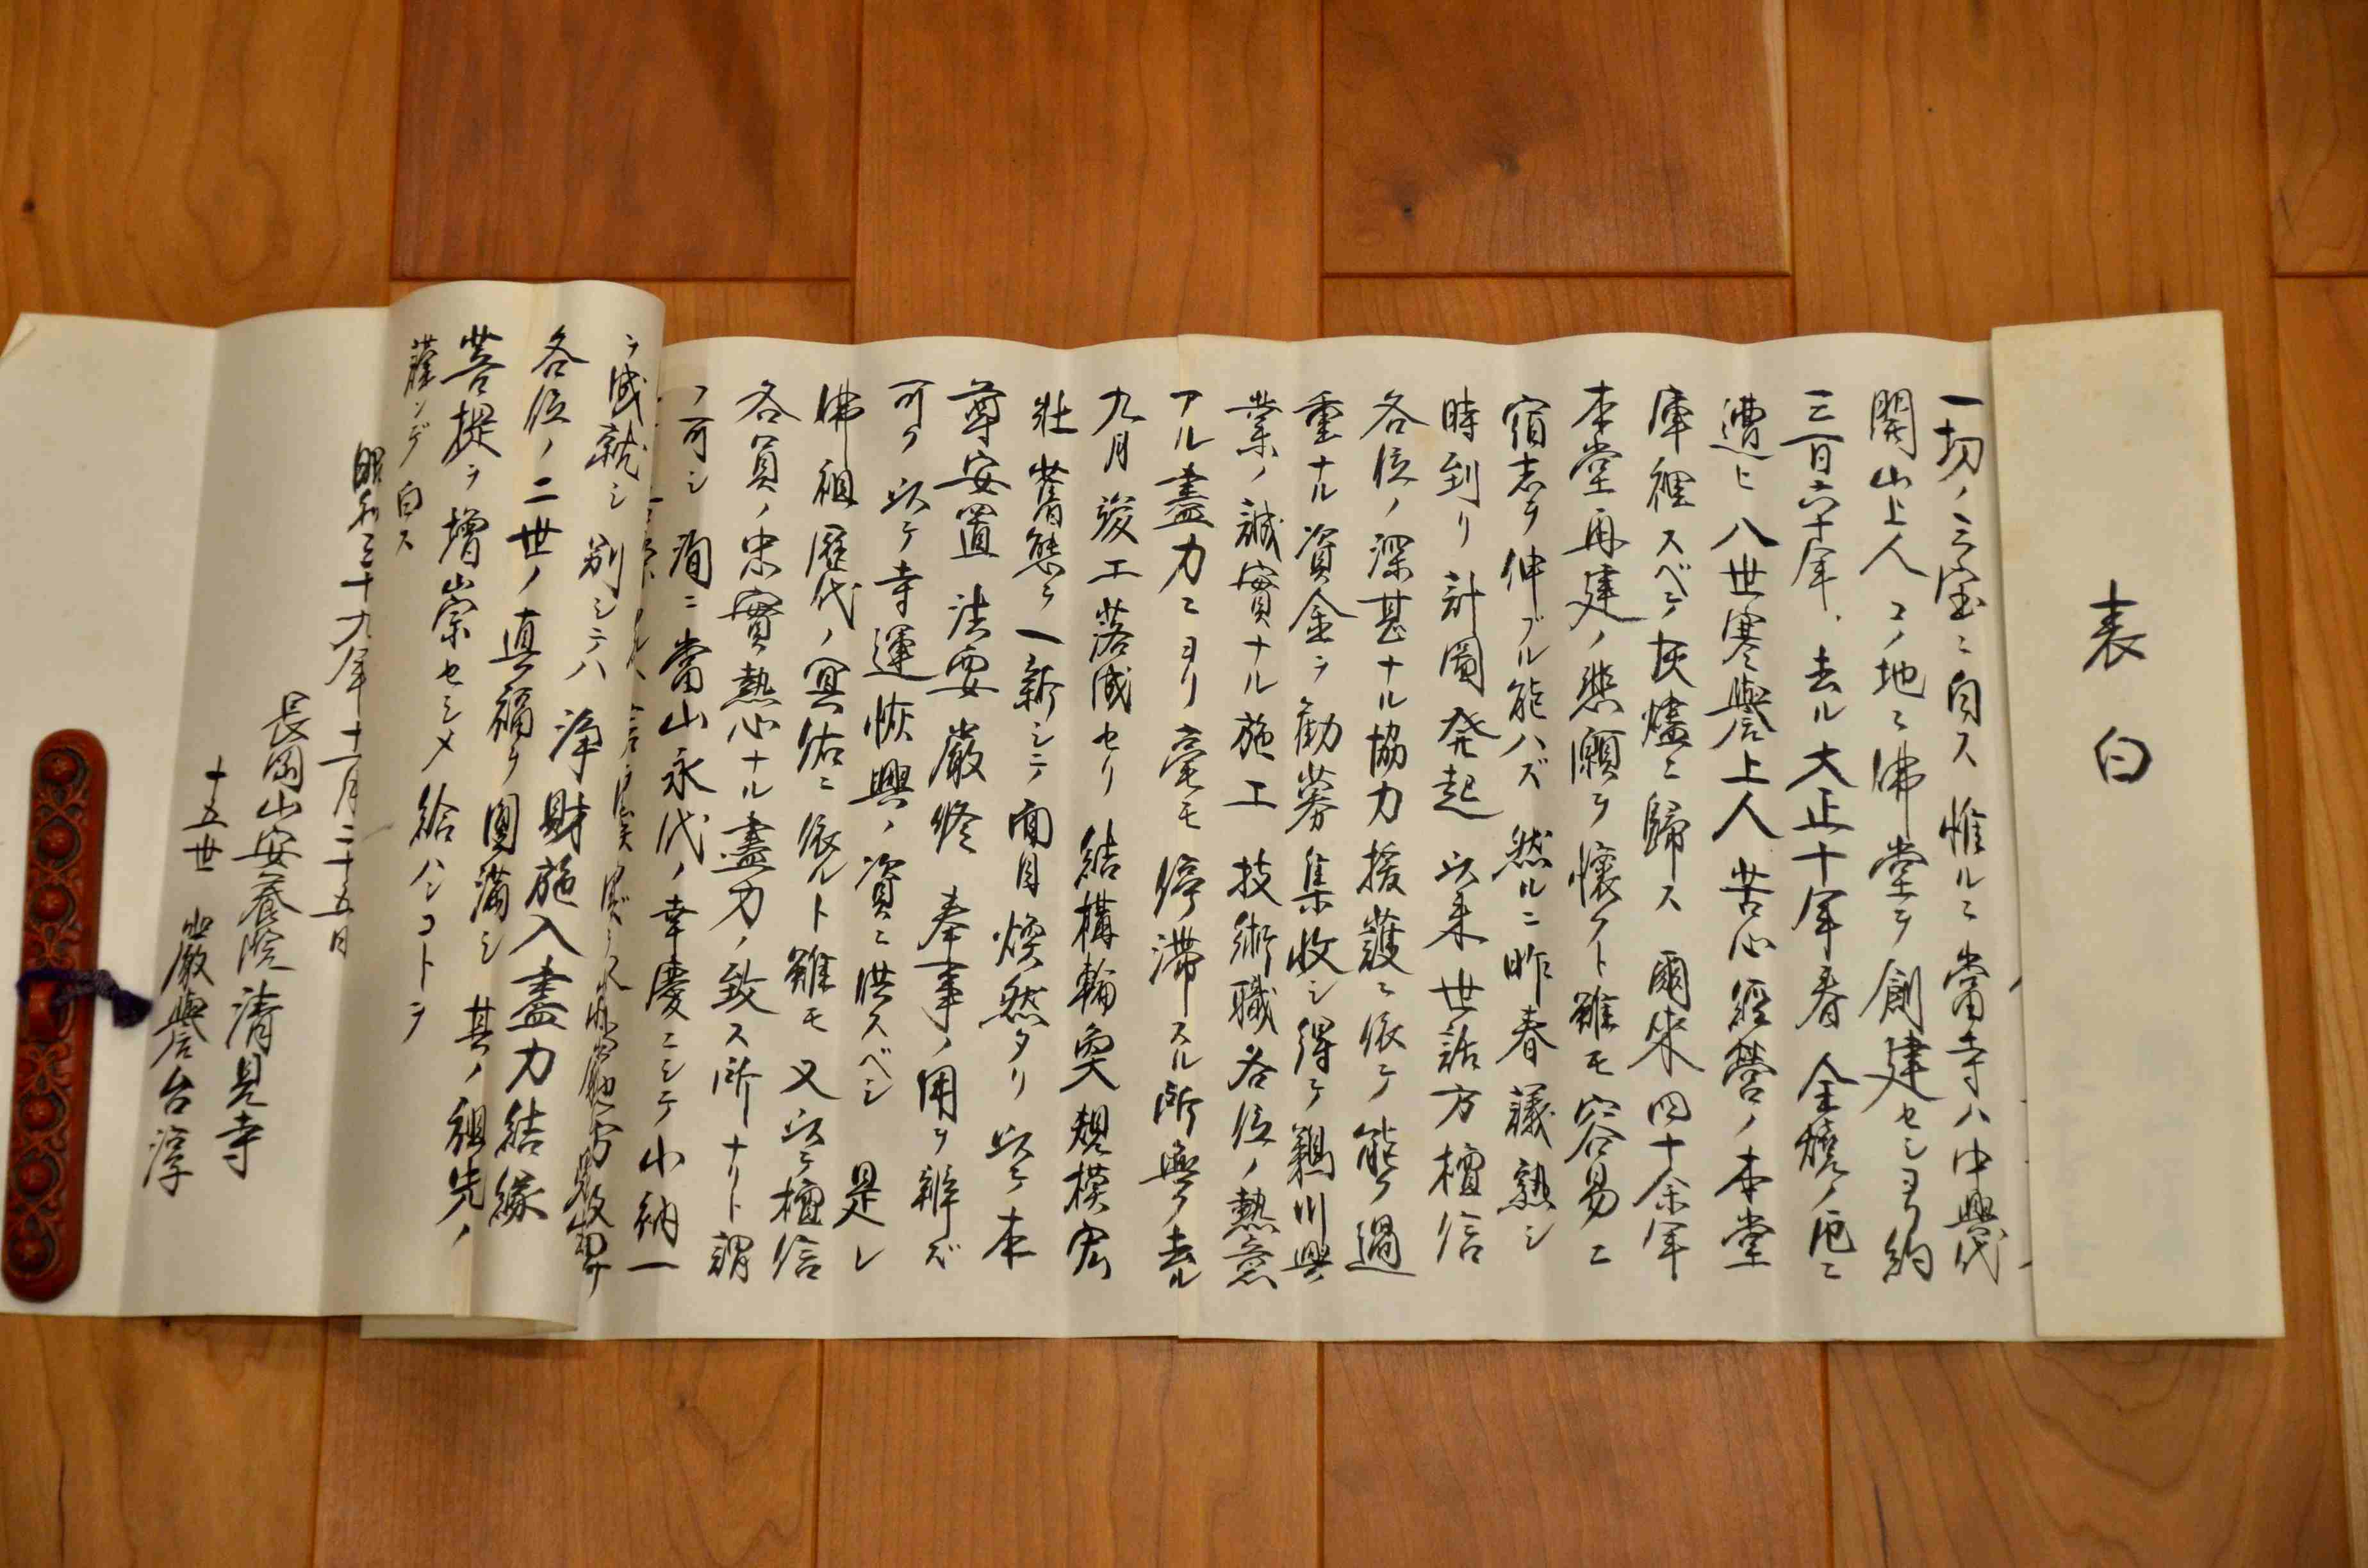 表白
一切ノ三宝ニ白ス 惟ルニ當寺ハ中興代
開山上人コノ地ニ佛堂ヲ創建セシヨリ約
三百六十年、去ル大正十年春 全燒ノ厄ニ
遭ヒ 八世寒譽上人苦心經營ノ本堂
庫裡スベテ灰燼ニ歸ス 爾来四十余年
本堂再建ノ悲願ヲ懐クト雖モ容易ニ
宿志ヲ伸ブル能ハズ 然ルニ昨春議熟シ
時到リ計圖発起 以来世話方檀信
各位ノ深甚ナル協力援護ニ依テ能ク過
重ナル資金ヲ勸募集收シ得テ鵜川興
業ノ誠實ナル施工 技術職各位ノ熱意
アル盡力ニヨリ毫モ停滞スル所無ク去ル
九月竣工落成セリ 結構輪奐規模宏
壯 舊態ヲ一新シテ面目煥然タリ 以テ本
尊安置 法要嚴修 奉事ノ用ヲ辨ズ
可ク 以テ寺運恢興ノ資ニ供スベシ 是レ
佛祖歷代ノ冥佑ニ依ルト雖モ又以テ檀信
各員ノ忠實熱心ナル盡力ノ致ス所ナリト謂
フ可シ 洵ニ當山永代ノ幸慶ニシテ小納一
ヲ成就シ 別シテハ 浄財施入盡力結縁
各位ノ二世ノ真福ヲ圓満シ 其ノ祖先ノ
菩提ヲ增崇セシメ給ハンコトヲ
謹ンデ白ス
昭和三十九年十一月二十五日
長岡山安養院清見寺
十五世 嚴譽台淳